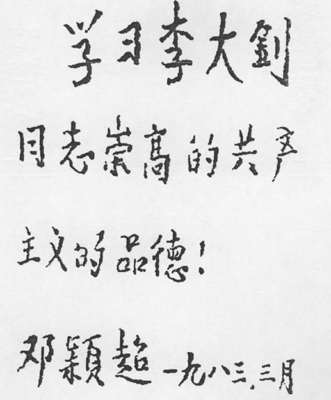 学习李大钊
同志崇高的共产
主义的品德！
邓颖超 一九八三.三月